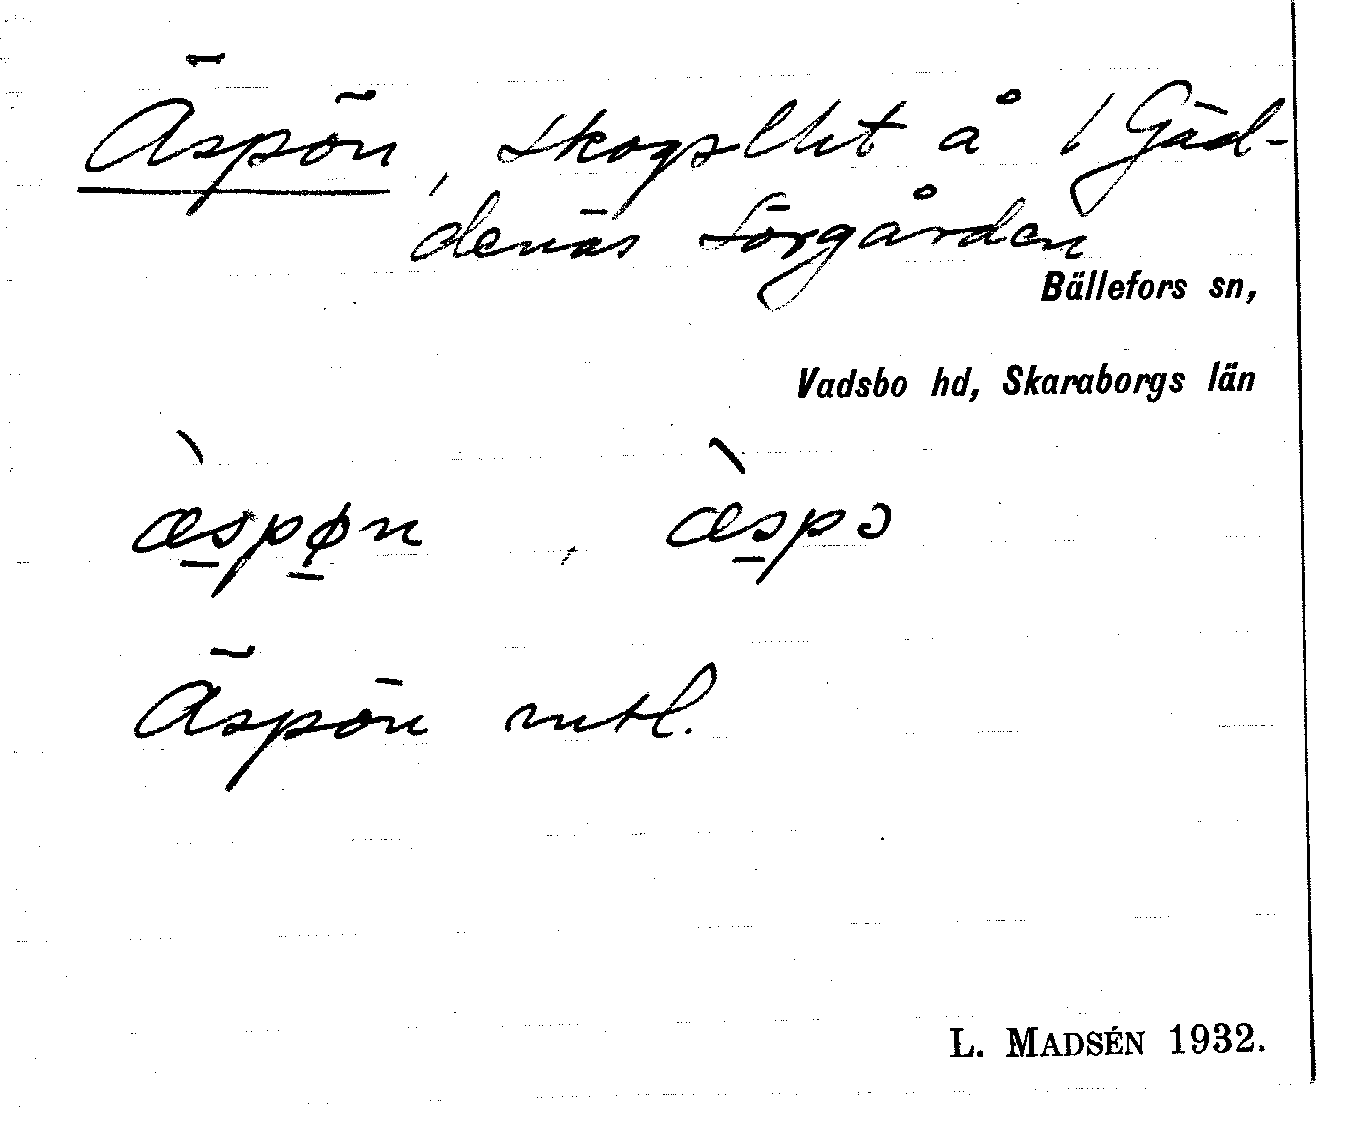 Äspön, skogsllht å 1 Gäd-
denäs Sörgården
Bällefors sn,
Vadsbo hd, Skaraborgs län
æ̀s̠pø̠n , æ̀s̠pɔ
Äspön mtl.
L. MADSÉN 1932.